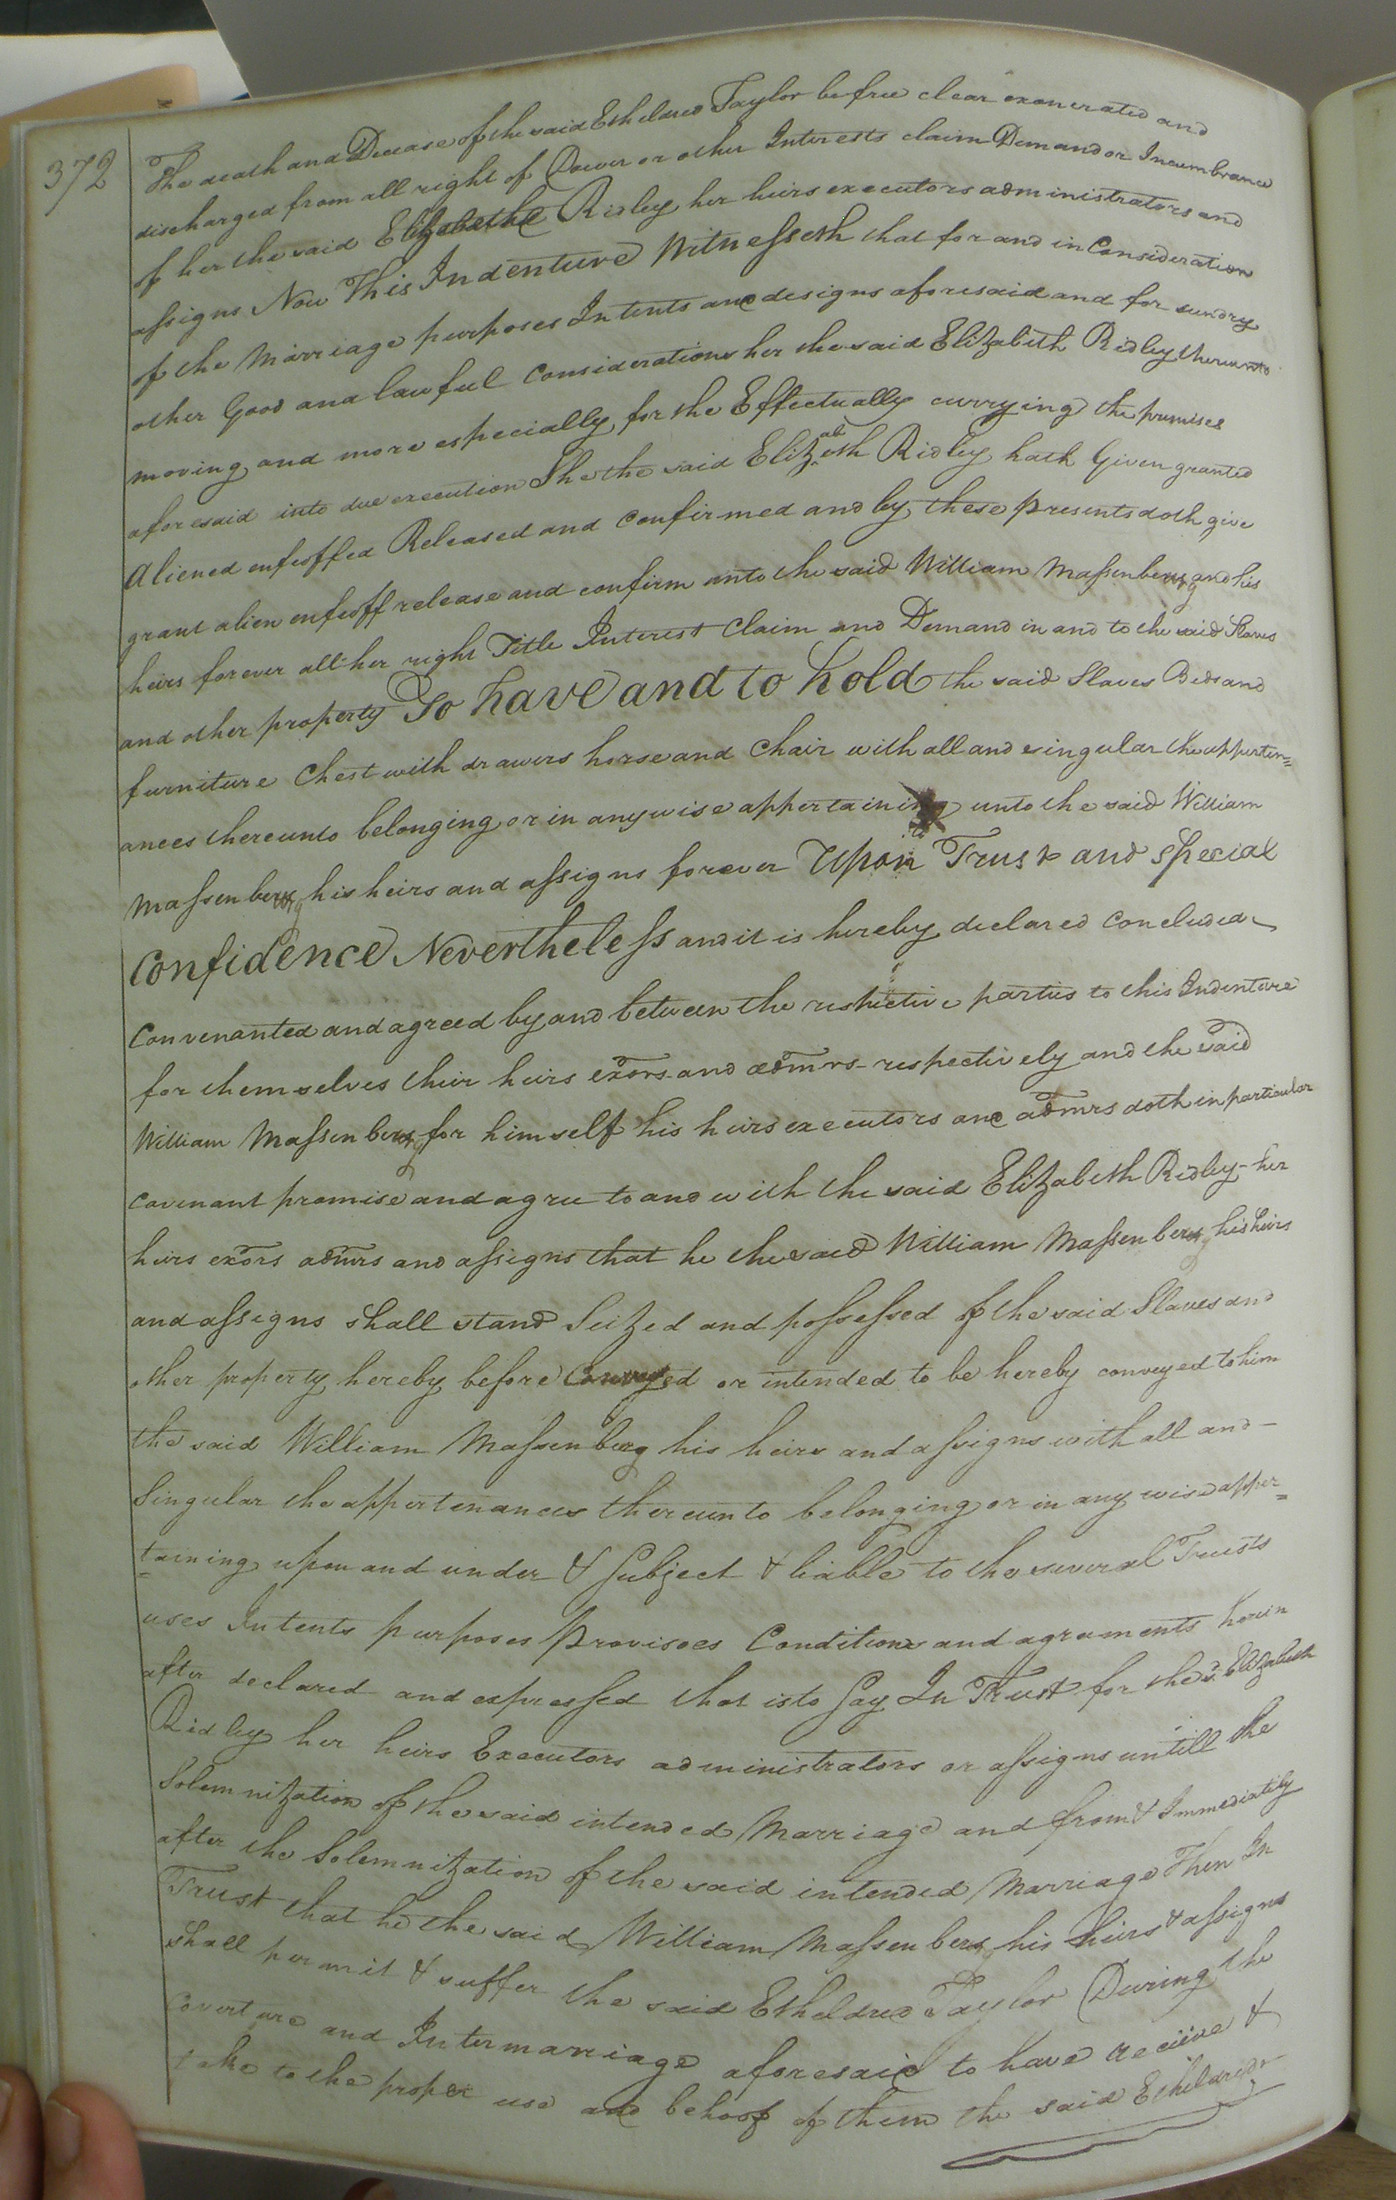 372
The death and Decease of the said Etheldred Taylor be free clear exonerated and
discharged from all right of Dower or other Interests claim Demand or Incumbrance
of her the said Elizabeth Ridley her heirs executors administrators and
assigns Now This Indenture Witnesseth that for and in Consideration
of the Marriage purposes Intents and designs aforesaid and for sundry
other Good and lawful Considerations her the said Elizabeth Ridley thereunto
moving and more especially for the Effectually currying the premises
aforesaid into due execution She the said Elizabeth Ridley hath Given granted
Aliened enfeoffed Released and confirmed and by these presents doth give
grant alien enfeoff release and confirm unto the said William Massenberg and his
heirs forever all her right Title Interest Claim and Demand in and to the said Slaves
and other property To have and to hold the said Slaves Beds and
furniture Chest with drawers horse and Chair with all and singular the apperten=
ances thereunto belonging or in anywise appertaining unto the said William
Massenberg his heirs and assigns forever Upon Trust and special
Confidence Nevertheless and it is hereby declared concluded
Convenanted and agreed by and between the respective parties to this Indenture
for themselves their heirs exors and admrs respectively and the said
William Massenberg for himself his heirs executors and admrs doth in particular
covenant promise and agree to and with the said Elizabeth Ridley her
heirs exors admrs and assigns that he the said William Massenberg his heirs
and assigns shall stand Seitzed and possessed of the said Slaves and
other property hereby before Conveyed or intended to be hereby conveyed to him
the said William Massenberg his heirs and assigns with all and
Singular the appertenances thereunto belonging or in any wise apper=
=taining upon and under & Subject & liable to the several Trusts
uses Intents purposes Provisoes Conditions and agraments herein
after declared and expressed that is to Say In Trust for the sd. Elizabeth
Ridley her heirs Executors administrators or assigns untill the
Solemnitzation of the said intended Marriage and from & Immediately
after the Solemnitzation of the said intended Marriage Then In
Trust that he the said William Massenberg his heirs & assigns
shall permit & suffer the said Etheldred Taylor During the
Coverture and Intermarriage aforesaid to have receive &
take to the proper use and behoof of them the said Etheldred